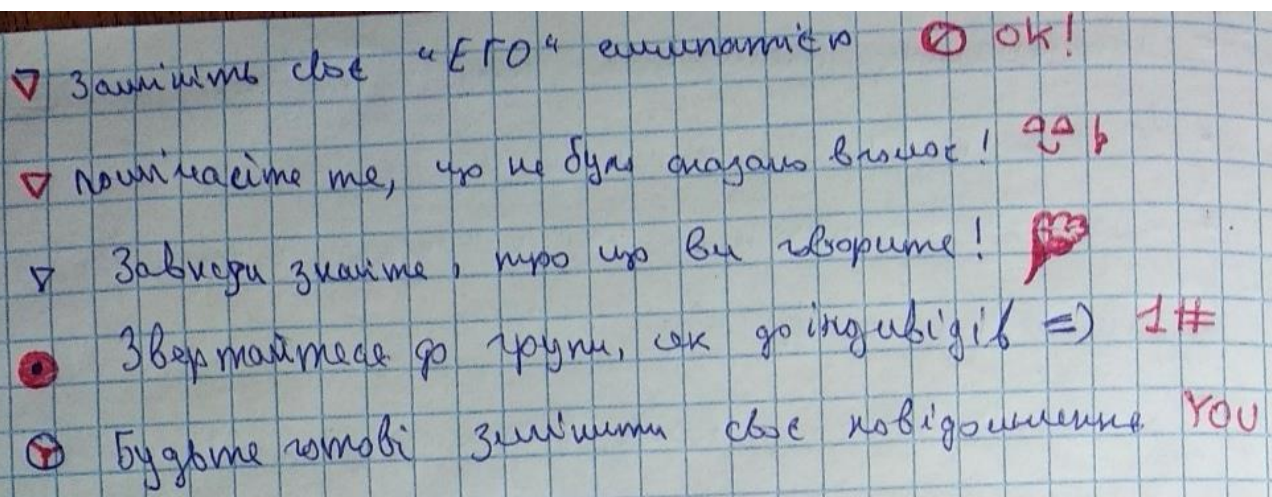 Замініть своє "ЕГО" емпатією ok!
Помічайте те, що не було сказано вголос!
Завжди знайте, про що ви говорите!
Звертайтеся до групи, як до індивідів => 1#
Будьте готові змінити своє повідомлення YOU